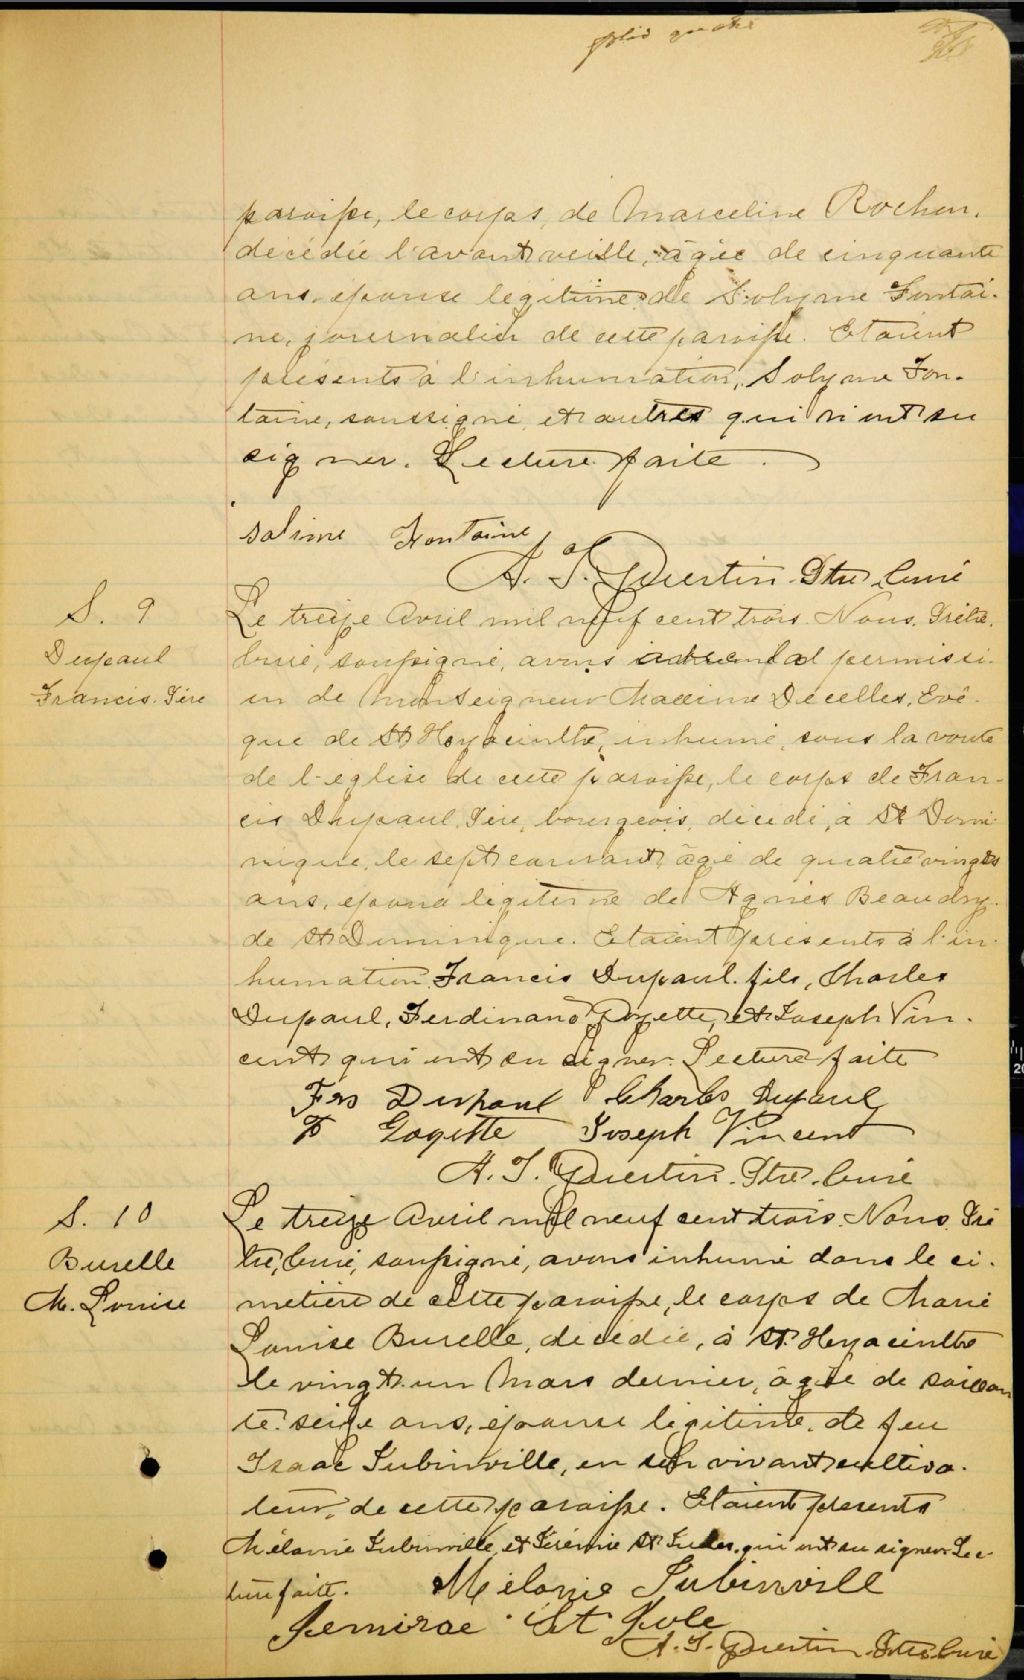 folio quatre
paroisse, le corps, de Marceline Rochon,
décédée l'avant veille, âgée de cinquante
ans, épouse légitime de Solyme Fontai-
ne, journalier de cette paroisse. Etaient
présents à l'inhumation, Solyme Fon-
taine, soussigné et autres qui n'ont su
signer. Lecture faite.
Solime Fontaine
A. T. Guertin Ptre Curé
S. 9
Dupaul
Francis. Père
Le treize Avril mil neuf cent trois Nous, Prêtre,
Curé, soussigné, avons permissi-
on de Monseigneur Maxime Decelles, Evê-
que de St Hyacinthe, inhumé, sous la voute
de l'église de cette paroisse, le corps de Fran-
cis Dupaul, Père, bourgeois, décédé, à St Domi-
nique, le sept courant, âgé de quatre vingts
ans, époux légitime de Agnès Beaudry
de St Dominique. Etaient présents à l'in-
humation, Francis Dupaul. fils, Charles
Dupaul, Ferdinand Goyette, et Joseph Vin-
cent qui ont su signer. Lecture faite
Frs Dupaul Charles Dupaul
F Goyette Joseph Vincent
A. T. Guertin. Ptre. Curé
S. 10
Burelle
M. Louise
Le treize Avril mil neuf cent trois. Nous, Prê-
tre, Curé, soussigné, avons inhumé dans le ci-
metière de cette paroisse, le corps de Marie
Louise Burelle, décédée, à St. Hyacinthe
le vingt un Mars dernier, âgée de soixan
te. seize ans, épouse légitime, de feu
Isaac Jubinville, en son vivant cultiva-
teur, de cette paroisse. Etaient présents
Mélanie Jubinville, et Jérémie St Jules, qui ont su signer. Lec-
ture faite.
Mélanie Jubinvill
Jemirae St Jule
A. T. Guertin. Ptre Curé